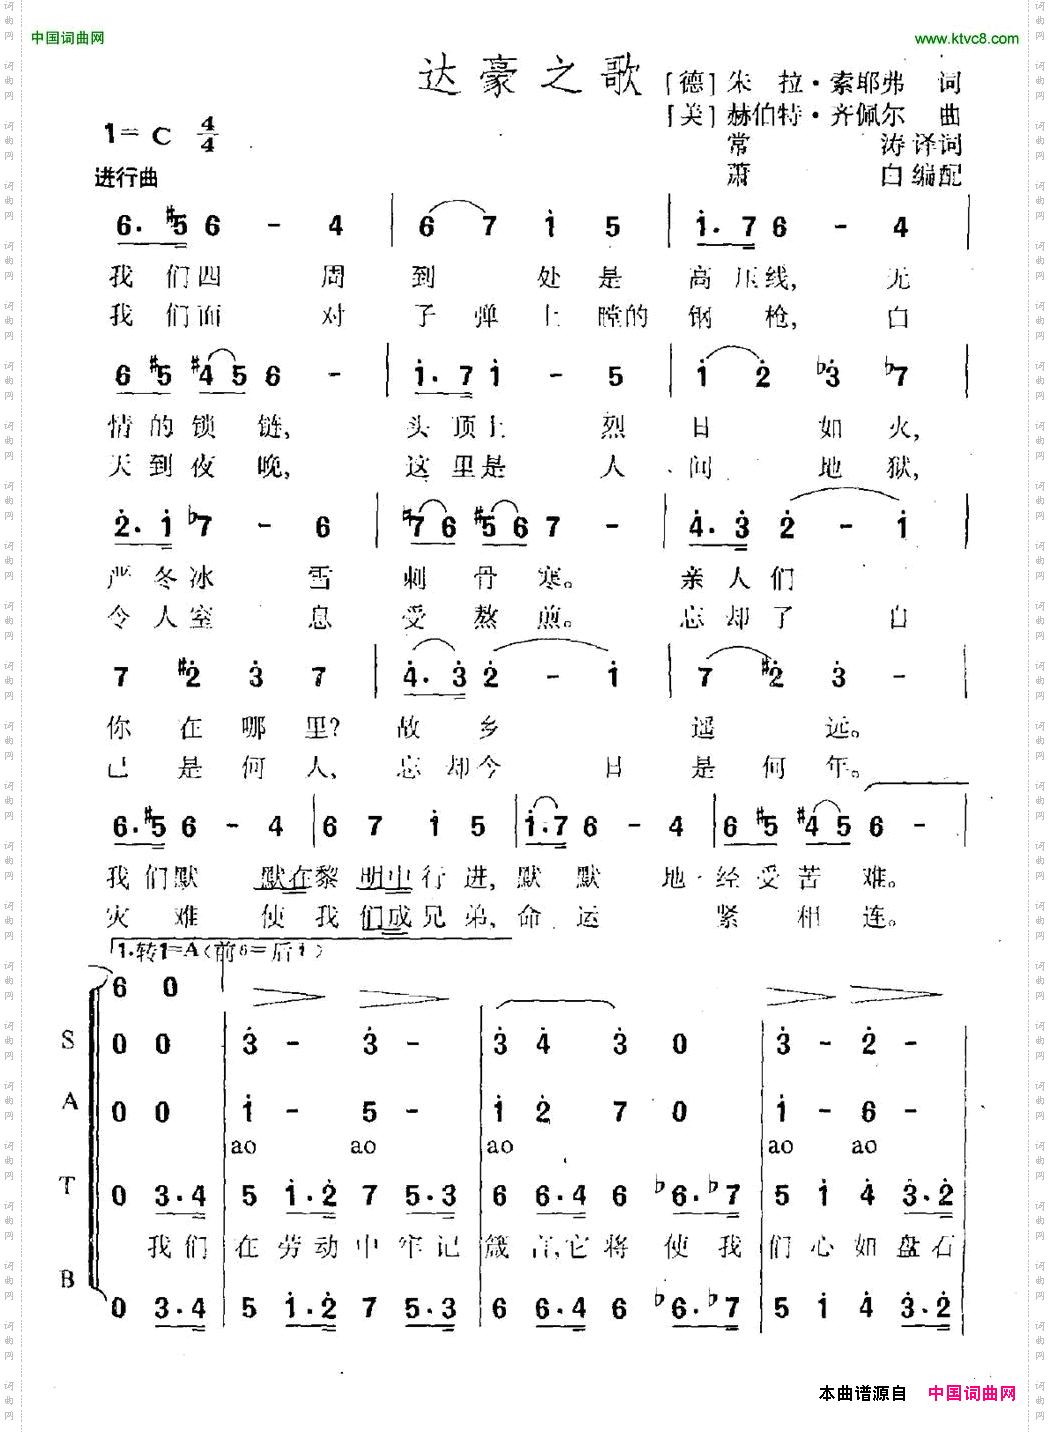 中国词曲网
www.ktvc8.com
达豪之歌
[德]朱 拉·索耶弗 词
[美]赫伯特·齐佩尔 曲
常 涛 译词
萧 白 编配
1= C 4/4
进行曲
6. #5 6 - 4 | 6 7 i 5 | i. 7 6 - 4 |
我 们 四 周 到 处 是 高 压 线, 无
我 们 面 对 子 弹 上 膛 的 钢 枪, 白
6 #5 #4 5 6 - | i. 7 i - 5 | i 2 b3 b7
情 的 锁 链, 头 顶 上 烈 日 如 火,
天 到 夜 晚, 这 里 是 人 间 地 狱,
2. i b7 - 6 | ♮7 6 #5 6 7 - | 4. 3 2 - i |
严 冬 冰 雪 刺 骨 寒。 亲 人 们
令 人 窒 息 受 熬 煎。 忘 却 了 自
7 #2 3 7 | 4. 3 2 - i | 7 #2 3 - |
你 在 哪 里? 故 乡 遥 远。
己 是 何 人, 忘 却 今 日 是 何 年。
6. #5 6 - 4 | 6 7 i 5 | i. 7 6 - 4 | 6 #5 #4 5 6 - |
我 们 默 默 在 黎 明 中 行 进, 默 默 地 经 受 苦 难。
灾 难 使 我 们 成 兄 弟, 命 运 紧 相 连。
1.转1=A(前6=后i)
6 0
S 0 0 | 3 - 3 - | 3 4 3 0 | 3 - 2 - |
A 0 0 | i - 5 - | i 2 7 0 | i - 6 - |
ao ao ao ao ao
T 0 3. 4 | 5 i. 2 7 5. 3 | 6 6. 4 6 b6. b7 | 5 i 4 3. 2 |
我 们 在 劳 动 中 牢 记 箴 言, 它 将 使 我 们 心 如 盘 石
B 0 3. 4 | 5 i. 2 7 5. 3 | 6 6. 4 6 b6. b7 | 5 i 4 3. 2 |
本曲谱源自 中国词曲网